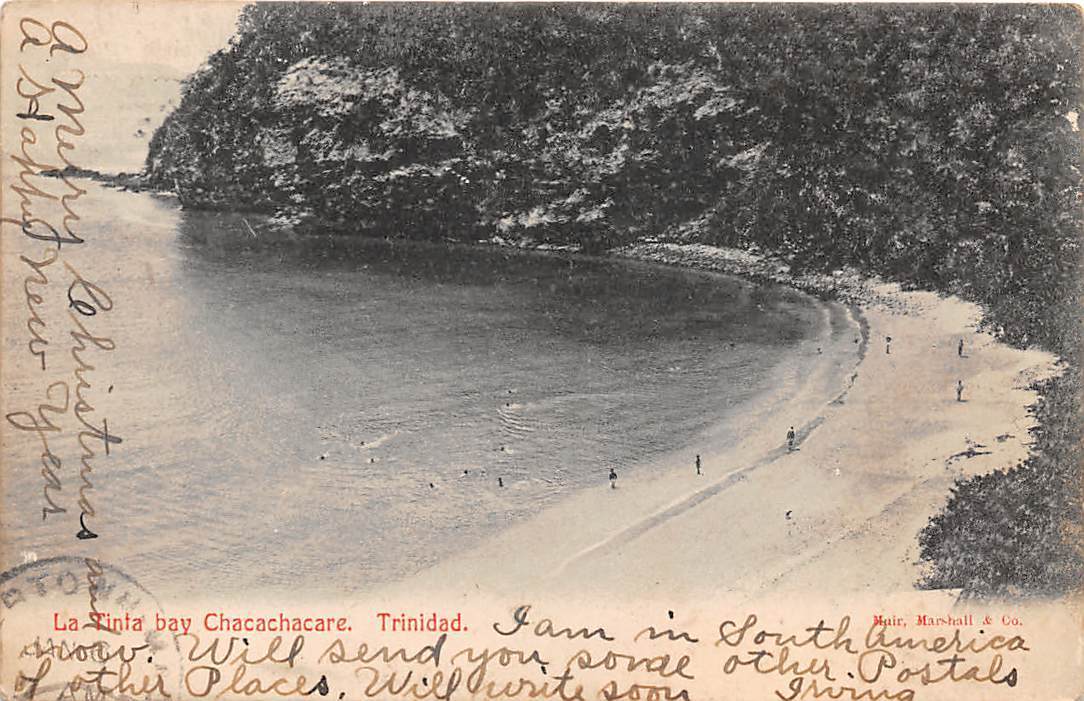 a Merry Christmas and
a Happy New Year
La Tinta bay Chacachacare. Trinidad.
Muir, Marshall & Co.
I am in South America
now. Will send you some other Postals
of other Places. Will write soon Irving